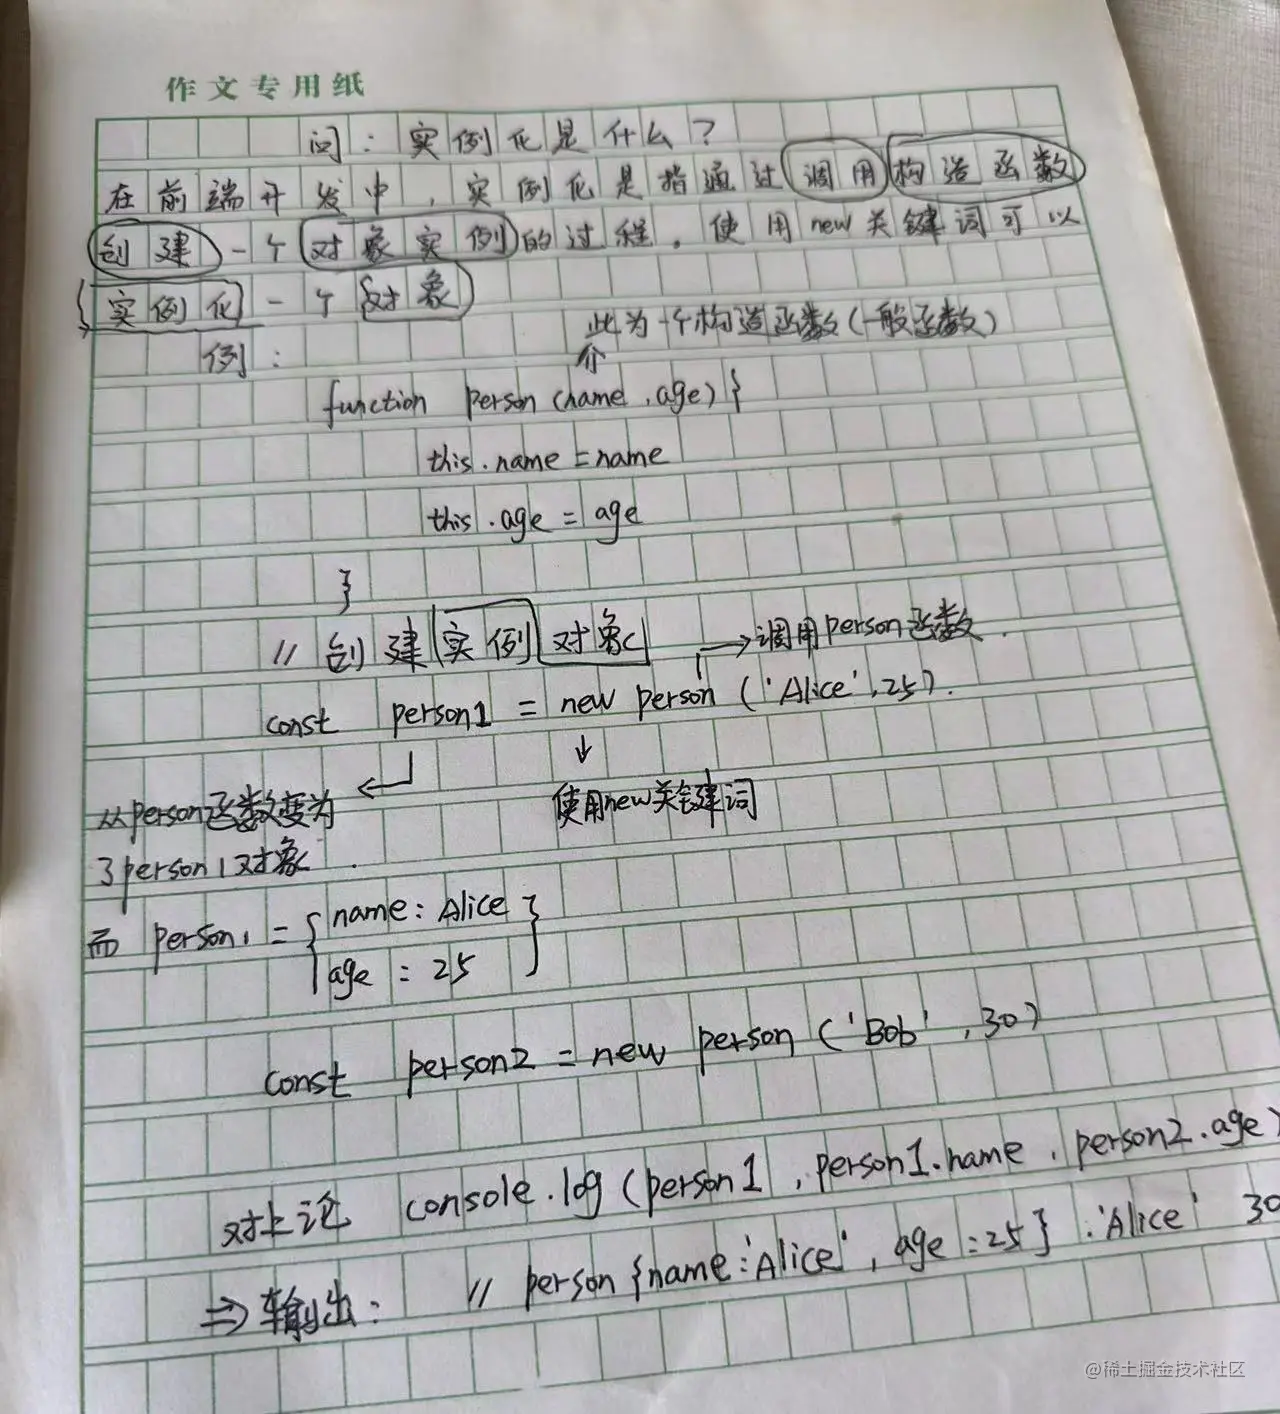 作文专用纸
问：实例化是什么？
在前端开发中，实例化是指通过调用构造函数
创建一个对象实例的过程，使用new关键词可以
实例化一个对象
此为一个构造函数(一般函数)
例：
function person(name,age){
this.name=name
this.age=age
}
//创建实例对象
→调用person函数
const person1 = new person('Alice',25).
从person函数变为
了person1对象.
使用new关键词
而 person1 = {name: Alice
age : 25}
const person2 = new person('Bob',30)
对上论 console.log(person1,person1.name,person2.age)
⇒输出： // person{name:'Alice',age:25}.'Alice' 30
@稀土掘金技术社区